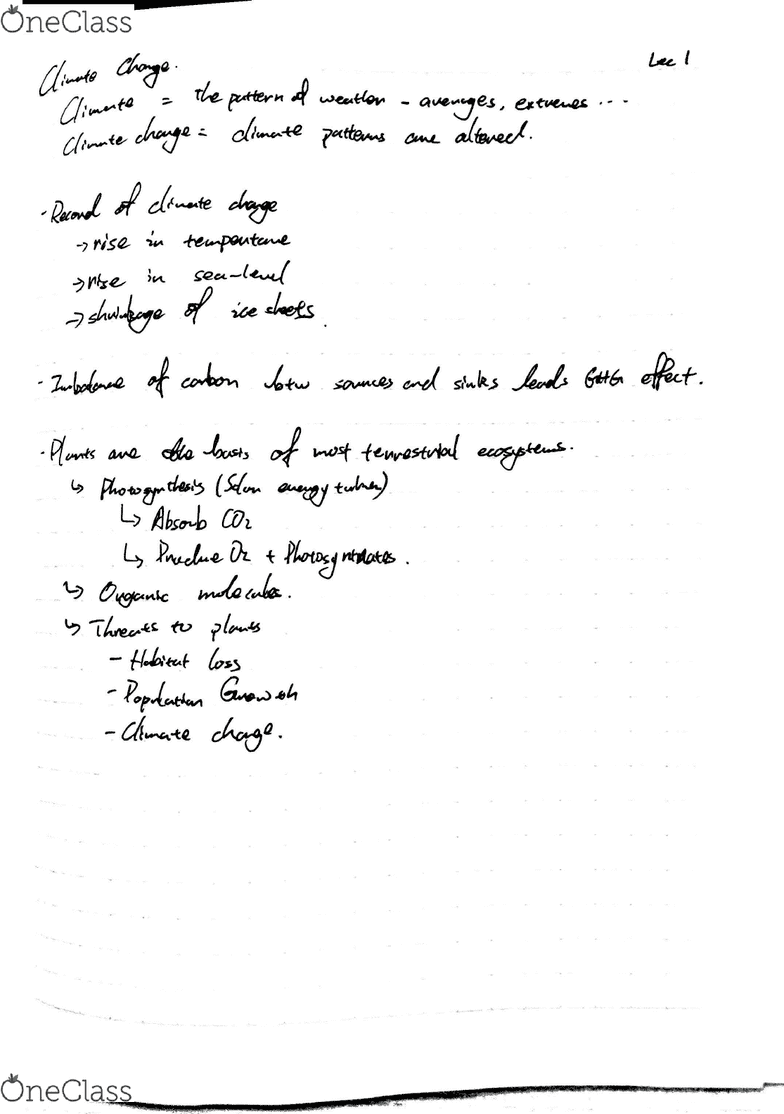 OneClass
Lec 1
Climate Change.
Climate = the pattern of weather - averages, extremes ...
Climate change = climate patterns are altered.
· Record of climate change
→ rise in temperature
→ rise in sea-level
→ shrinkage of ice sheets.
· Imbalance of carbon btw sources and sinks leads GHG effect.
· Plants are the basis of most terrestrial ecosystems.
↳ Photosynthesis (Solar energy
↳ Absorb CO₂
↳ Produce O₂ + Photosyntates.
↳ Organic molecules.
↳ Threats to plants
- Habitat loss
- Population Growth
- Climate change.
OneClass